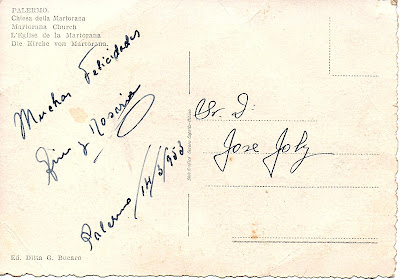 PALERMO.
Chiesa della Martorana
Martorana Church
L'Eglise de la Martorana
Die Kirche von Martorana.
Muchas Felicidades
y Rosaria
Palermo 14/3/953
Ed. Ditta G. Bucaro
Sr. D:
Jose Joly